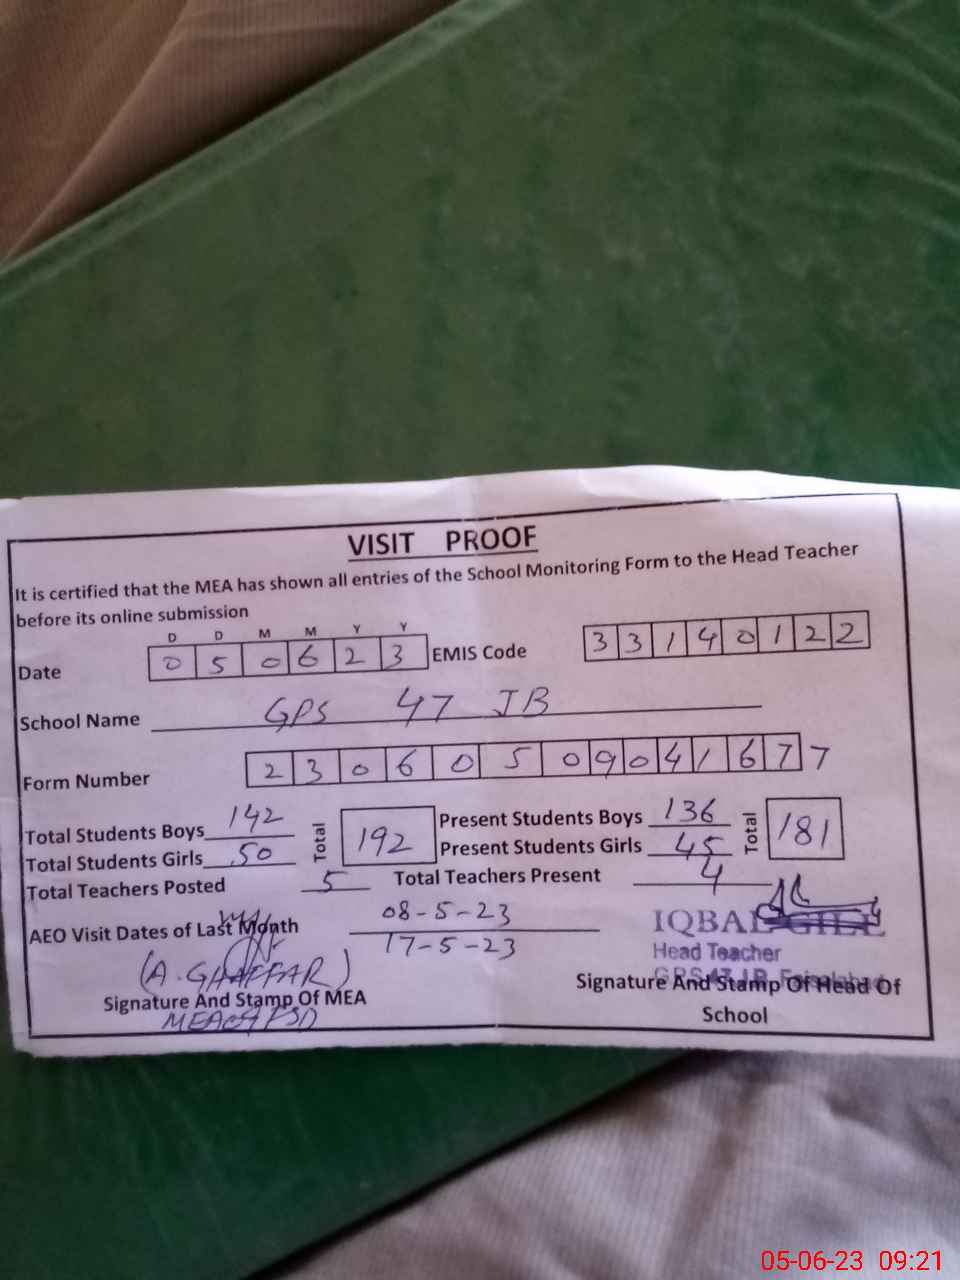 VISIT PROOF
It is certified that the MEA has shown all entries of the School Monitoring Form to the Head Teacher
before its online submission
D D M M Y Y
Date 0 5 0 6 2 3 EMIS Code 3 3 1 4 0 1 2 2
School Name GPS 47 JB
Form Number 2 3 0 6 0 5 0 9 0 4 1 6 7 7
Total Students Boys 142 Total 192 Present Students Boys 136 Total 181
Total Students Girls 50 Present Students Girls 45
Total Teachers Posted 5 Total Teachers Present 4
AEO Visit Dates of Last Month 08-5-23
17-5-23
IQBAL GILL
Head Teacher
GPS 47 J.B, Faisalabad
(A. GHAFFAR)
Signature And Stamp Of MEA
Signature And Stamp Of Head Of
School
05-06-23 09:21